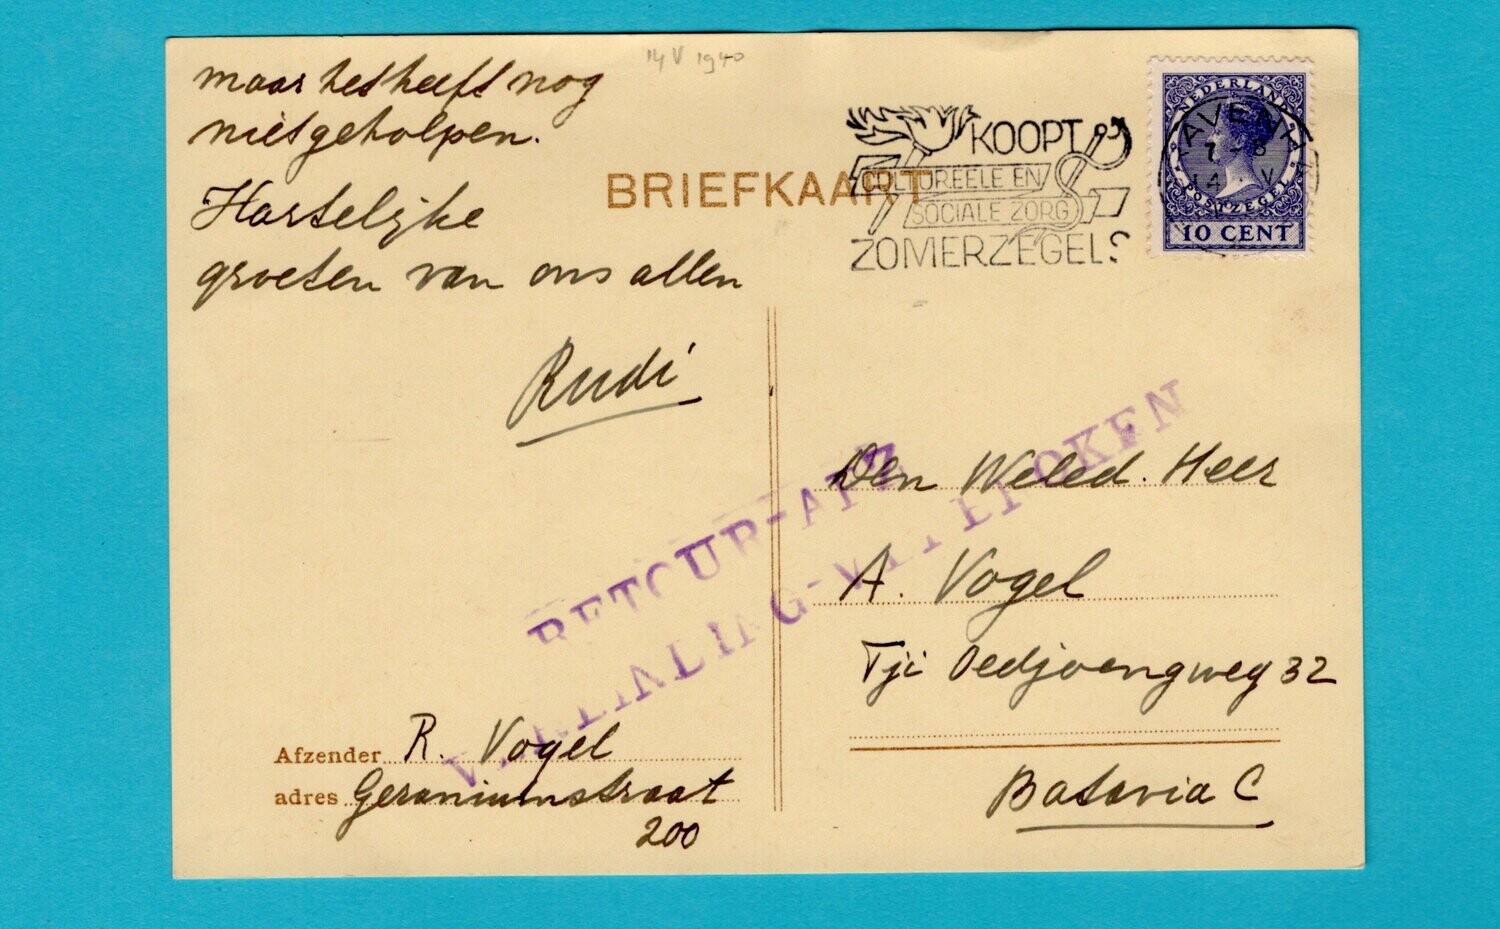 maar het heeft nog
niet geholpen.
Hartelijke
groeten van ons allen
Rudi
14 V 1940
BRIEFKAART
KOOPT
CULTUREELE EN
SOCIALE ZORG
ZOMERZEGELS
NEDERLAND
POSTZEGEL
10 CENT
7-8
14 V
RETOUR-AFZ
VERBINDING-VERBROKEN
Den Weled. Heer
A. Vogel
Tji Oedjoengweg 32
Batavia C
Afzender R. Vogel
adres Geraniumstraat
200